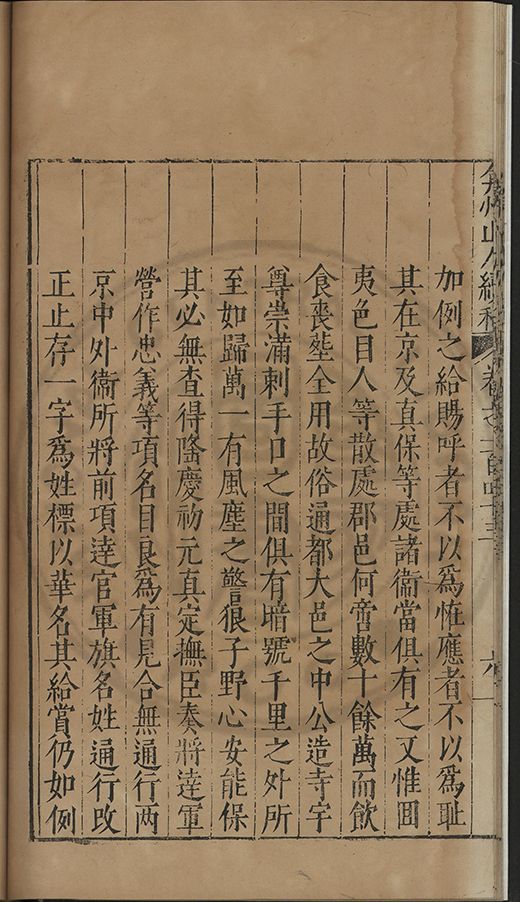 弇州山人續稿 卷之一百四十三 六
加例之給賜呼者不以爲恠應者不以爲耻
其在京及真保等處諸衞當俱有之又惟囬
夷色目人等散處郡邑何啻數十餘萬而飲
食喪塟全用故俗通都大邑之中公造寺宇
尊崇滿剌手口之間俱有暗號千里之外所
至如歸萬一有風塵之警狼子野心安能保
其必無查得隆慶初元真定撫臣奏將逹軍
營作忠義等項名目良爲有見合無通行两
京中外衞所將前項逹官軍旗名姓通行改
正止存一字爲姓標以華名其給賞仍如例